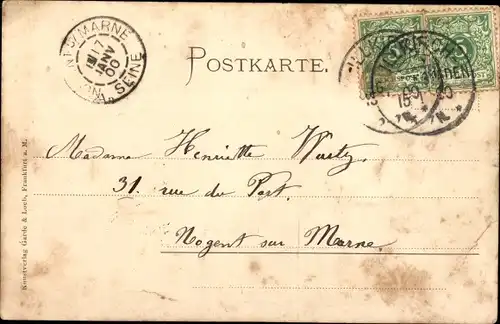 MARNE
17
JANV
00
SEINE
POSTKARTE.
Madame Henriette Wurtz,
31. rue du Port.
Nogent sur Marne.
Kunstverlag Garde & Loeb, Frankfurt a. M.